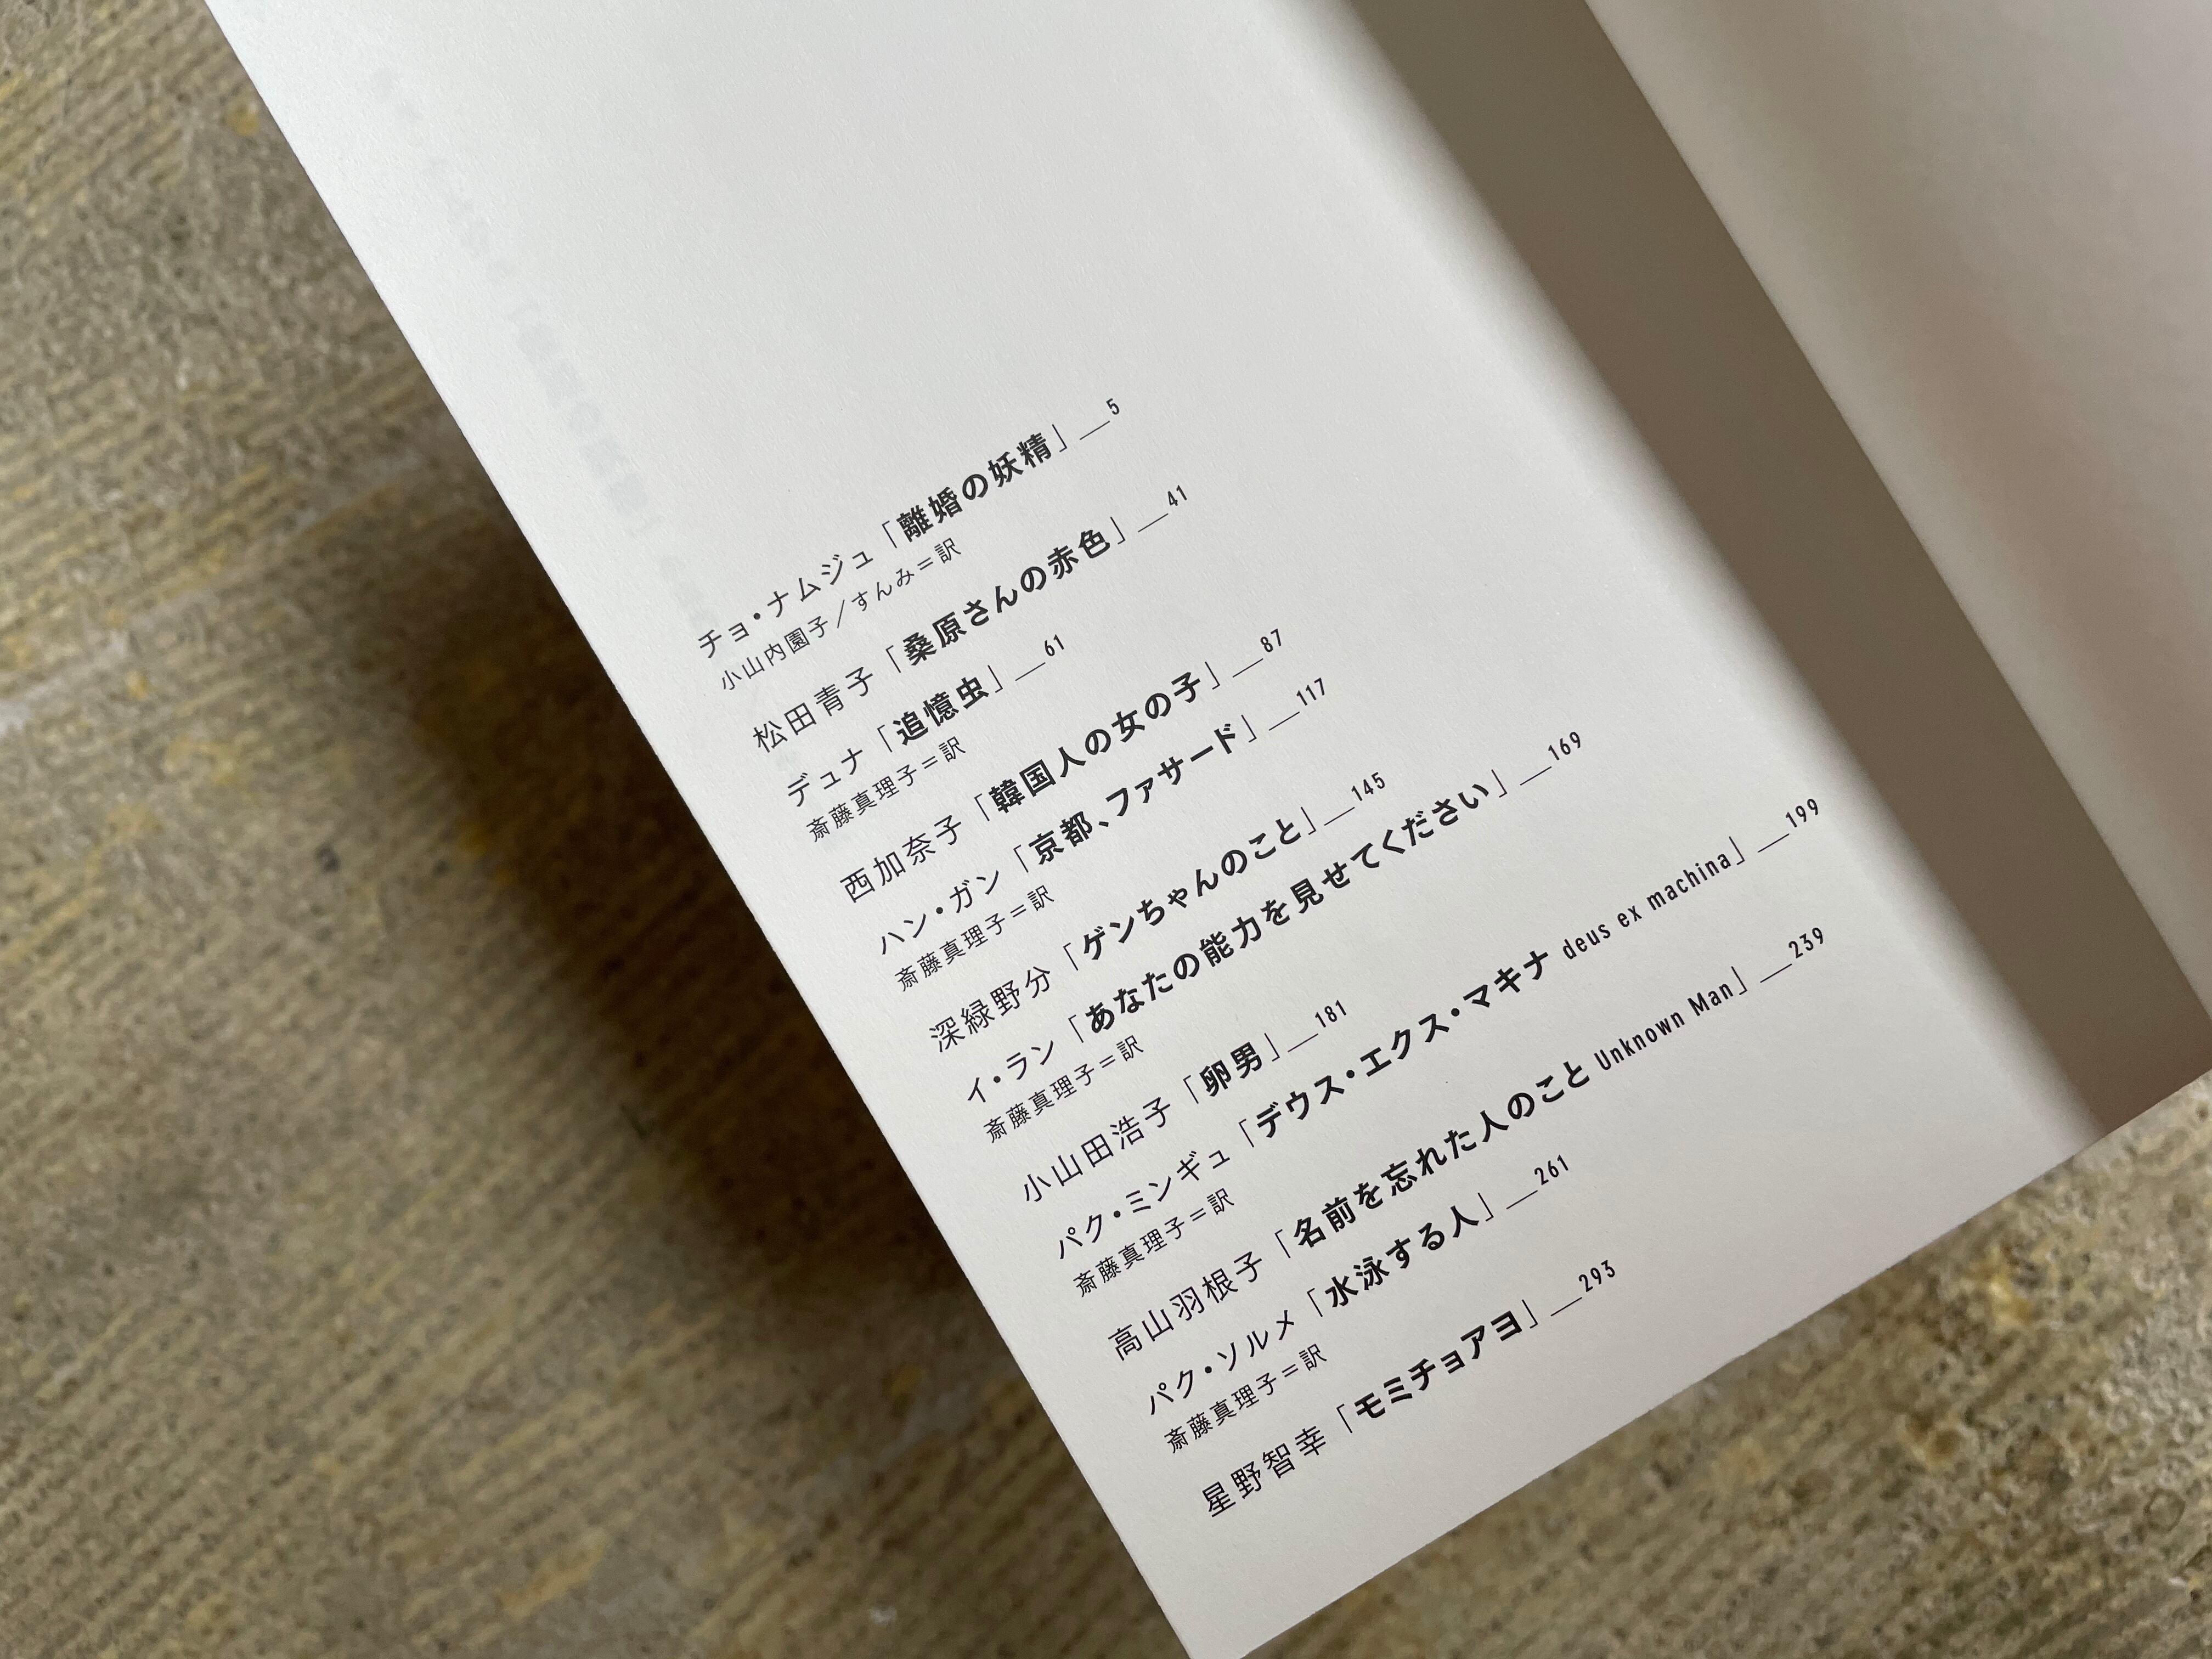 チョ・ナムジュ「離婚の妖精」__5
小山内園子／すんみ＝訳
松田青子「桑原さんの赤色」__41
デュナ「追憶虫」__61
斎藤真理子＝訳
西加奈子「韓国人の女の子」__87
ハン・ガン「京都、ファサード」__117
斎藤真理子＝訳
深緑野分「ゲンちゃんのこと」__145
イ・ラン「あなたの能力を見せてください」__169
斎藤真理子＝訳
小山田浩子「卵男」__181
パク・ミンギュ「デウス・エクス・マキナ deus ex machina」__199
斎藤真理子＝訳
高山羽根子「名前を忘れた人のこと Unknown Man」__239
パク・ソルメ「水泳する人」__261
斎藤真理子＝訳
星野智幸「モミチョアヨ」__293